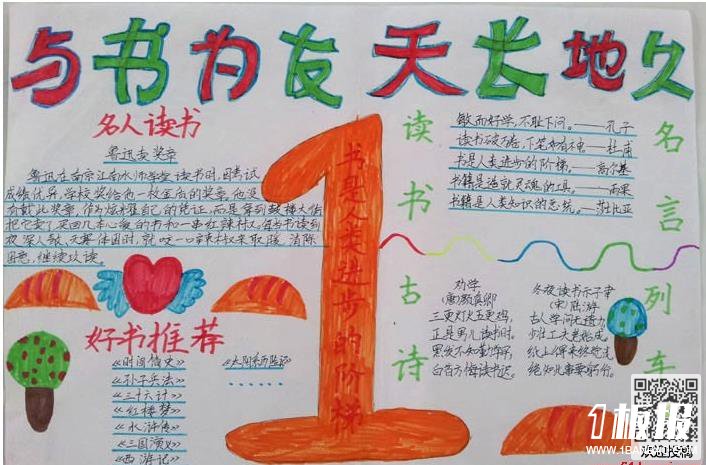 与书为友天长地久
名人读书
鲁迅卖奖章
鲁迅在南京江南水师学堂读书时,因考试
成绩优异,学校奖给他一枚金质的奖章,他没
有戴此奖章,作为炫耀自己的凭证,而是拿到鼓楼大街
把它卖了,买回几本心爱的书和一串红辣椒,每当书读到
夜深人静、天寒体困时,就咬一口辣椒来取暖,消除
困意,继续攻读。
好书推荐
《时间简史》
《孙子兵法》
《三十六计》
《红楼梦》
《水浒传》
《三国演义》
《西游记》
……
1
书是人类进步的阶梯
读书古诗
敏而好学,不耻下问。——孔子
读书破万卷,下笔如有神——杜甫
书是人类进步的阶梯,——高尔基
书籍是造就灵魂的工具。——雨果
书籍是人类知识的总统。——莎士比亚
名言列车
劝学
(唐)颜真卿
三更灯火五更鸡,
正是男儿读书时。
黑发不知勤学早,
白首方悔读书迟。
冬夜读书示子聿
(宋)陆游
古人学问无遗力,
少壮工夫老始成。
纸上得来终觉浅,
绝知此事要躬行。
1板报